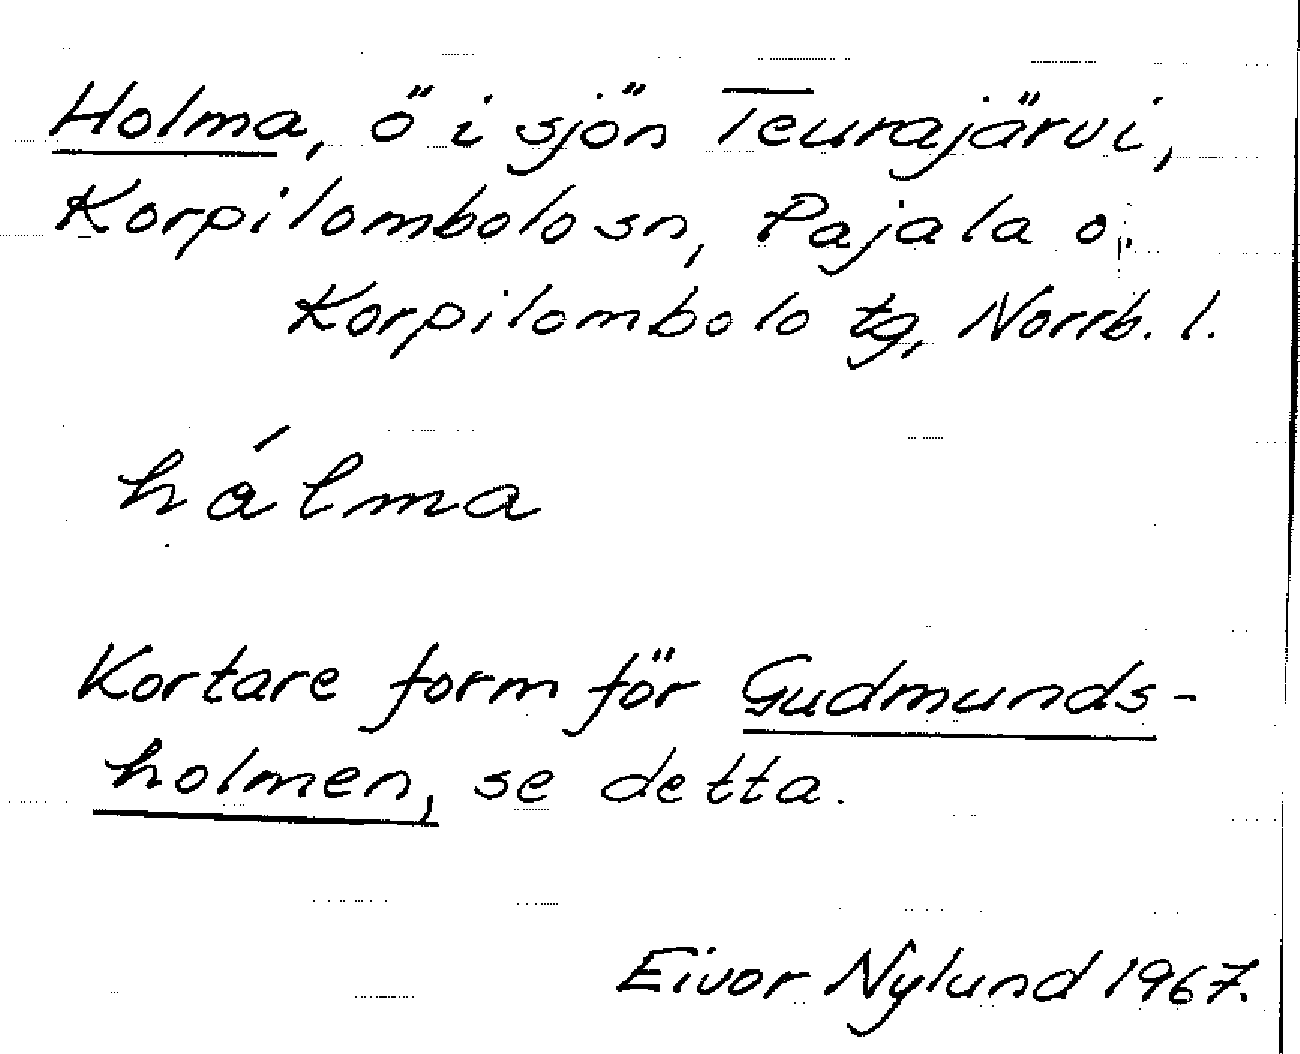 Holma, ö i sjön Teurajärvi,
Korpilombolo sn, Pajala o.
Korpilombolo tg, Norrb. l.
hálma
Kortare form för Gudmunds-
holmen, se detta.
Eivor Nylund 1967.